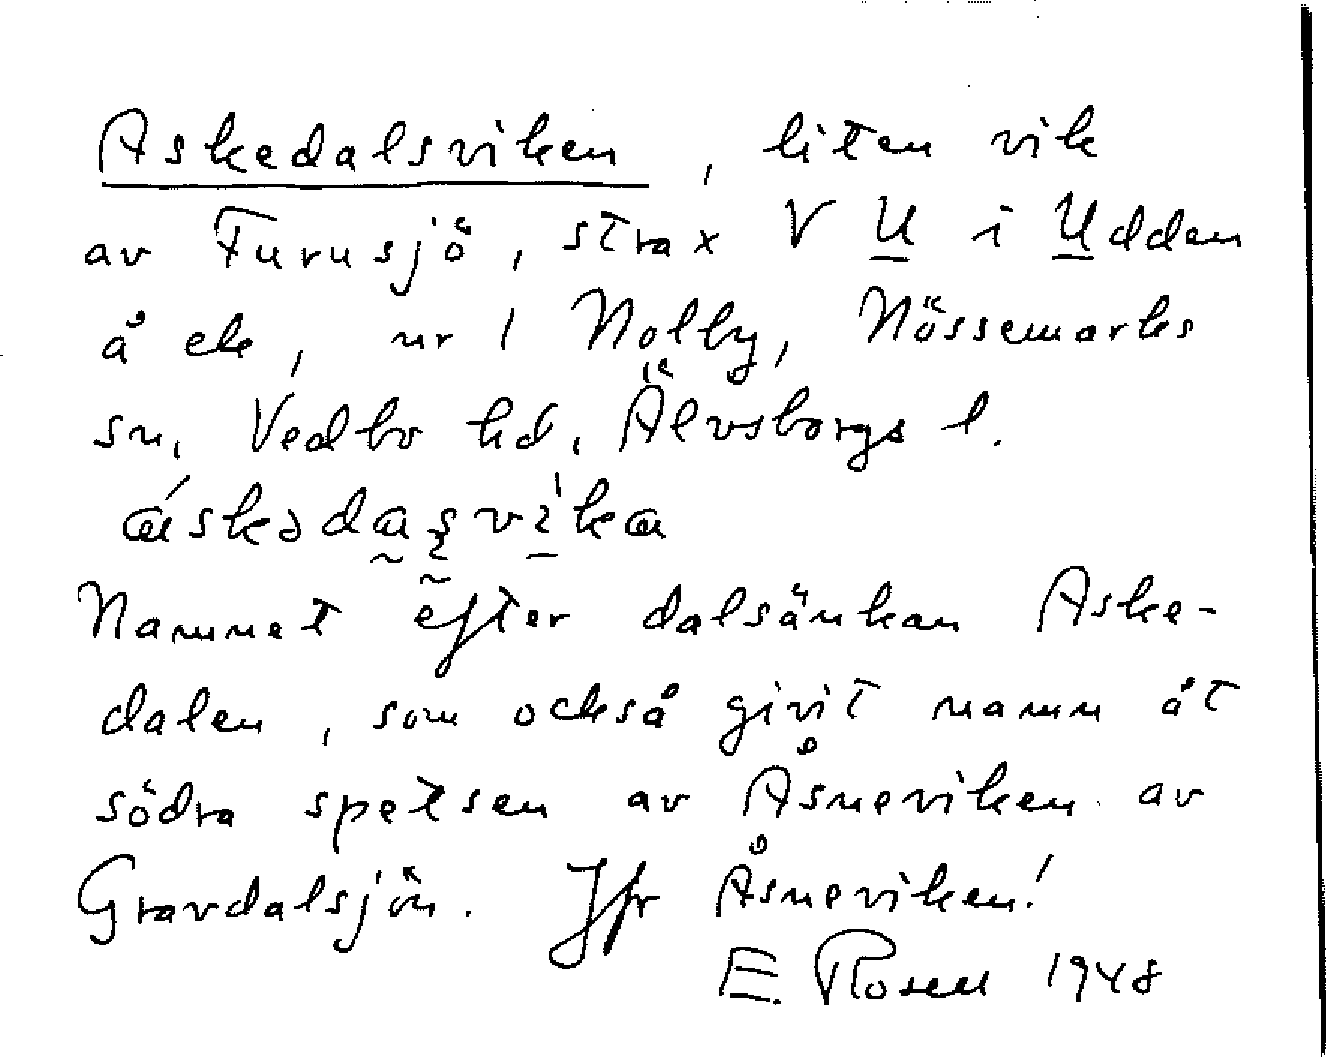 Askedalsviken, liten vik
av Furusjö, strax V U i Udden
å ek, nr 1 Nolby, Nössemarks
sn, Vedbo hd, Älvsborgs l.
Namnet efter dalsänkan Aske-
dalen, som också givit namn åt
södra spetsen av Åsneviken av
Gravdalsjön. Jfr Åsneviken!
E. Rosell 1948